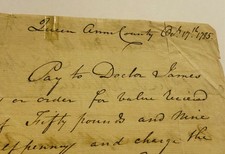 Queen Anns County Octr 17th 1785
Pay to Doctor James
or order for value received
of Fifty pounds and Nine
penny and charge the